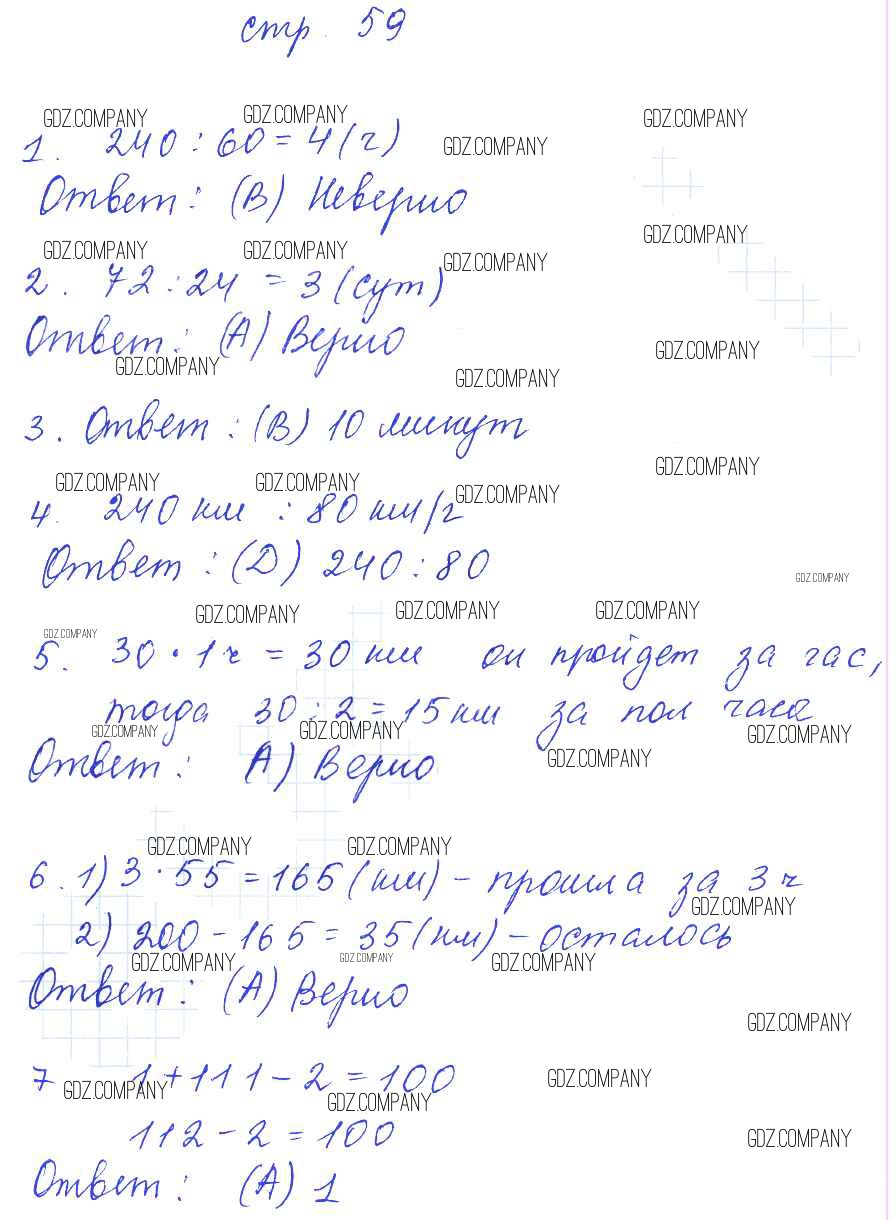 стр. 59
GDZ.COMPANY GDZ.COMPANY GDZ.COMPANY
1. 240 : 60 = 4 (г) GDZ.COMPANY
Ответ: (В) Неверно
GDZ.COMPANY
GDZ.COMPANY GDZ.COMPANY GDZ.COMPANY
2. 72 : 24 = 3 (сут)
Ответ: (А) Верно
GDZ.COMPANY
GDZ.COMPANY GDZ.COMPANY
3. Ответ: (В) 10 минут
GDZ.COMPANY
GDZ.COMPANY GDZ.COMPANY GDZ.COMPANY
4. 240 км : 80 км/г
Ответ: (D) 240 : 80
GDZ.COMPANY
GDZ.COMPANY GDZ.COMPANY GDZ.COMPANY
GDZ.COMPANY
5. 30 · 1 ч = 30 км он пройдет за час,
тогда 30 : 2 = 15 км за пол часа
GDZ.COMPANY GDZ.COMPANY GDZ.COMPANY
Ответ: А) Верно GDZ.COMPANY
GDZ.COMPANY GDZ.COMPANY
6. 1) 3 · 55 = 165 (км) – прошла за 3 ч
GDZ.COMPANY
2) 200 – 165 = 35 (км) – осталось
GDZ.COMPANY GDZ.COMPANY GDZ.COMPANY
Ответ: (А) Верно
GDZ.COMPANY
7 1 + 111 – 2 = 100
GDZ.COMPANY GDZ.COMPANY
GDZ.COMPANY
112 – 2 = 100
GDZ.COMPANY
Ответ: (А) 1